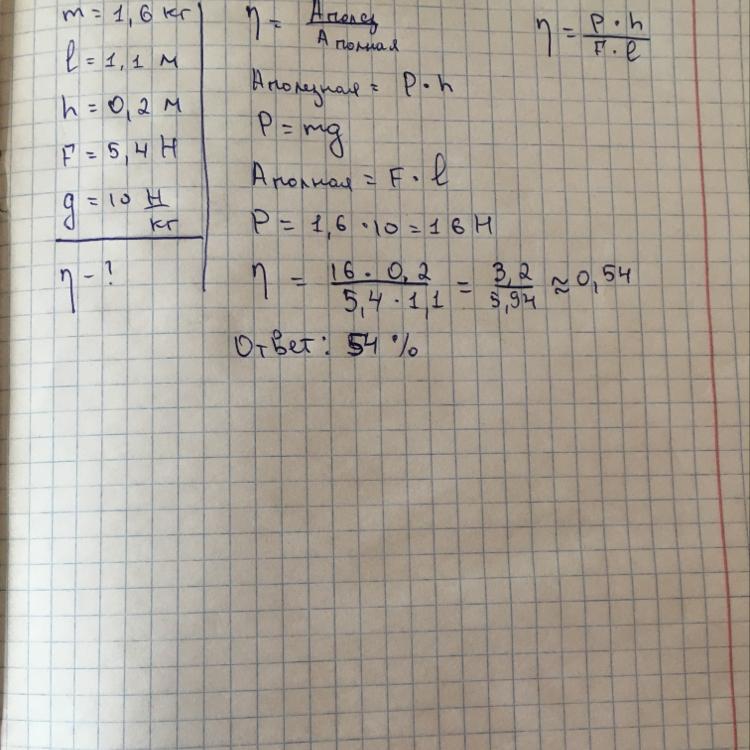 m = 1,6 кг
l = 1,1 м
h = 0,2 м
F = 5,4 Н
g = 10 Н/кг
η - ?
η = Аполез/Аполная
η = P · h / F · l
Аполезная = P · h
P = mg
Аполная = F · l
P = 1,6 · 10 = 16 Н
η = 16 · 0,2 / 5,4 · 1,1 = 3,2 / 5,94 ≈ 0,54
Ответ: 54 %